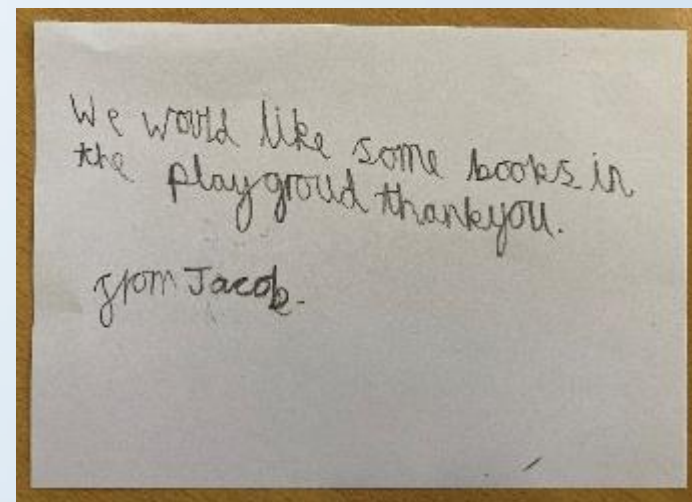 We would like some books in
the playgroud thankyou.
from Jacob.